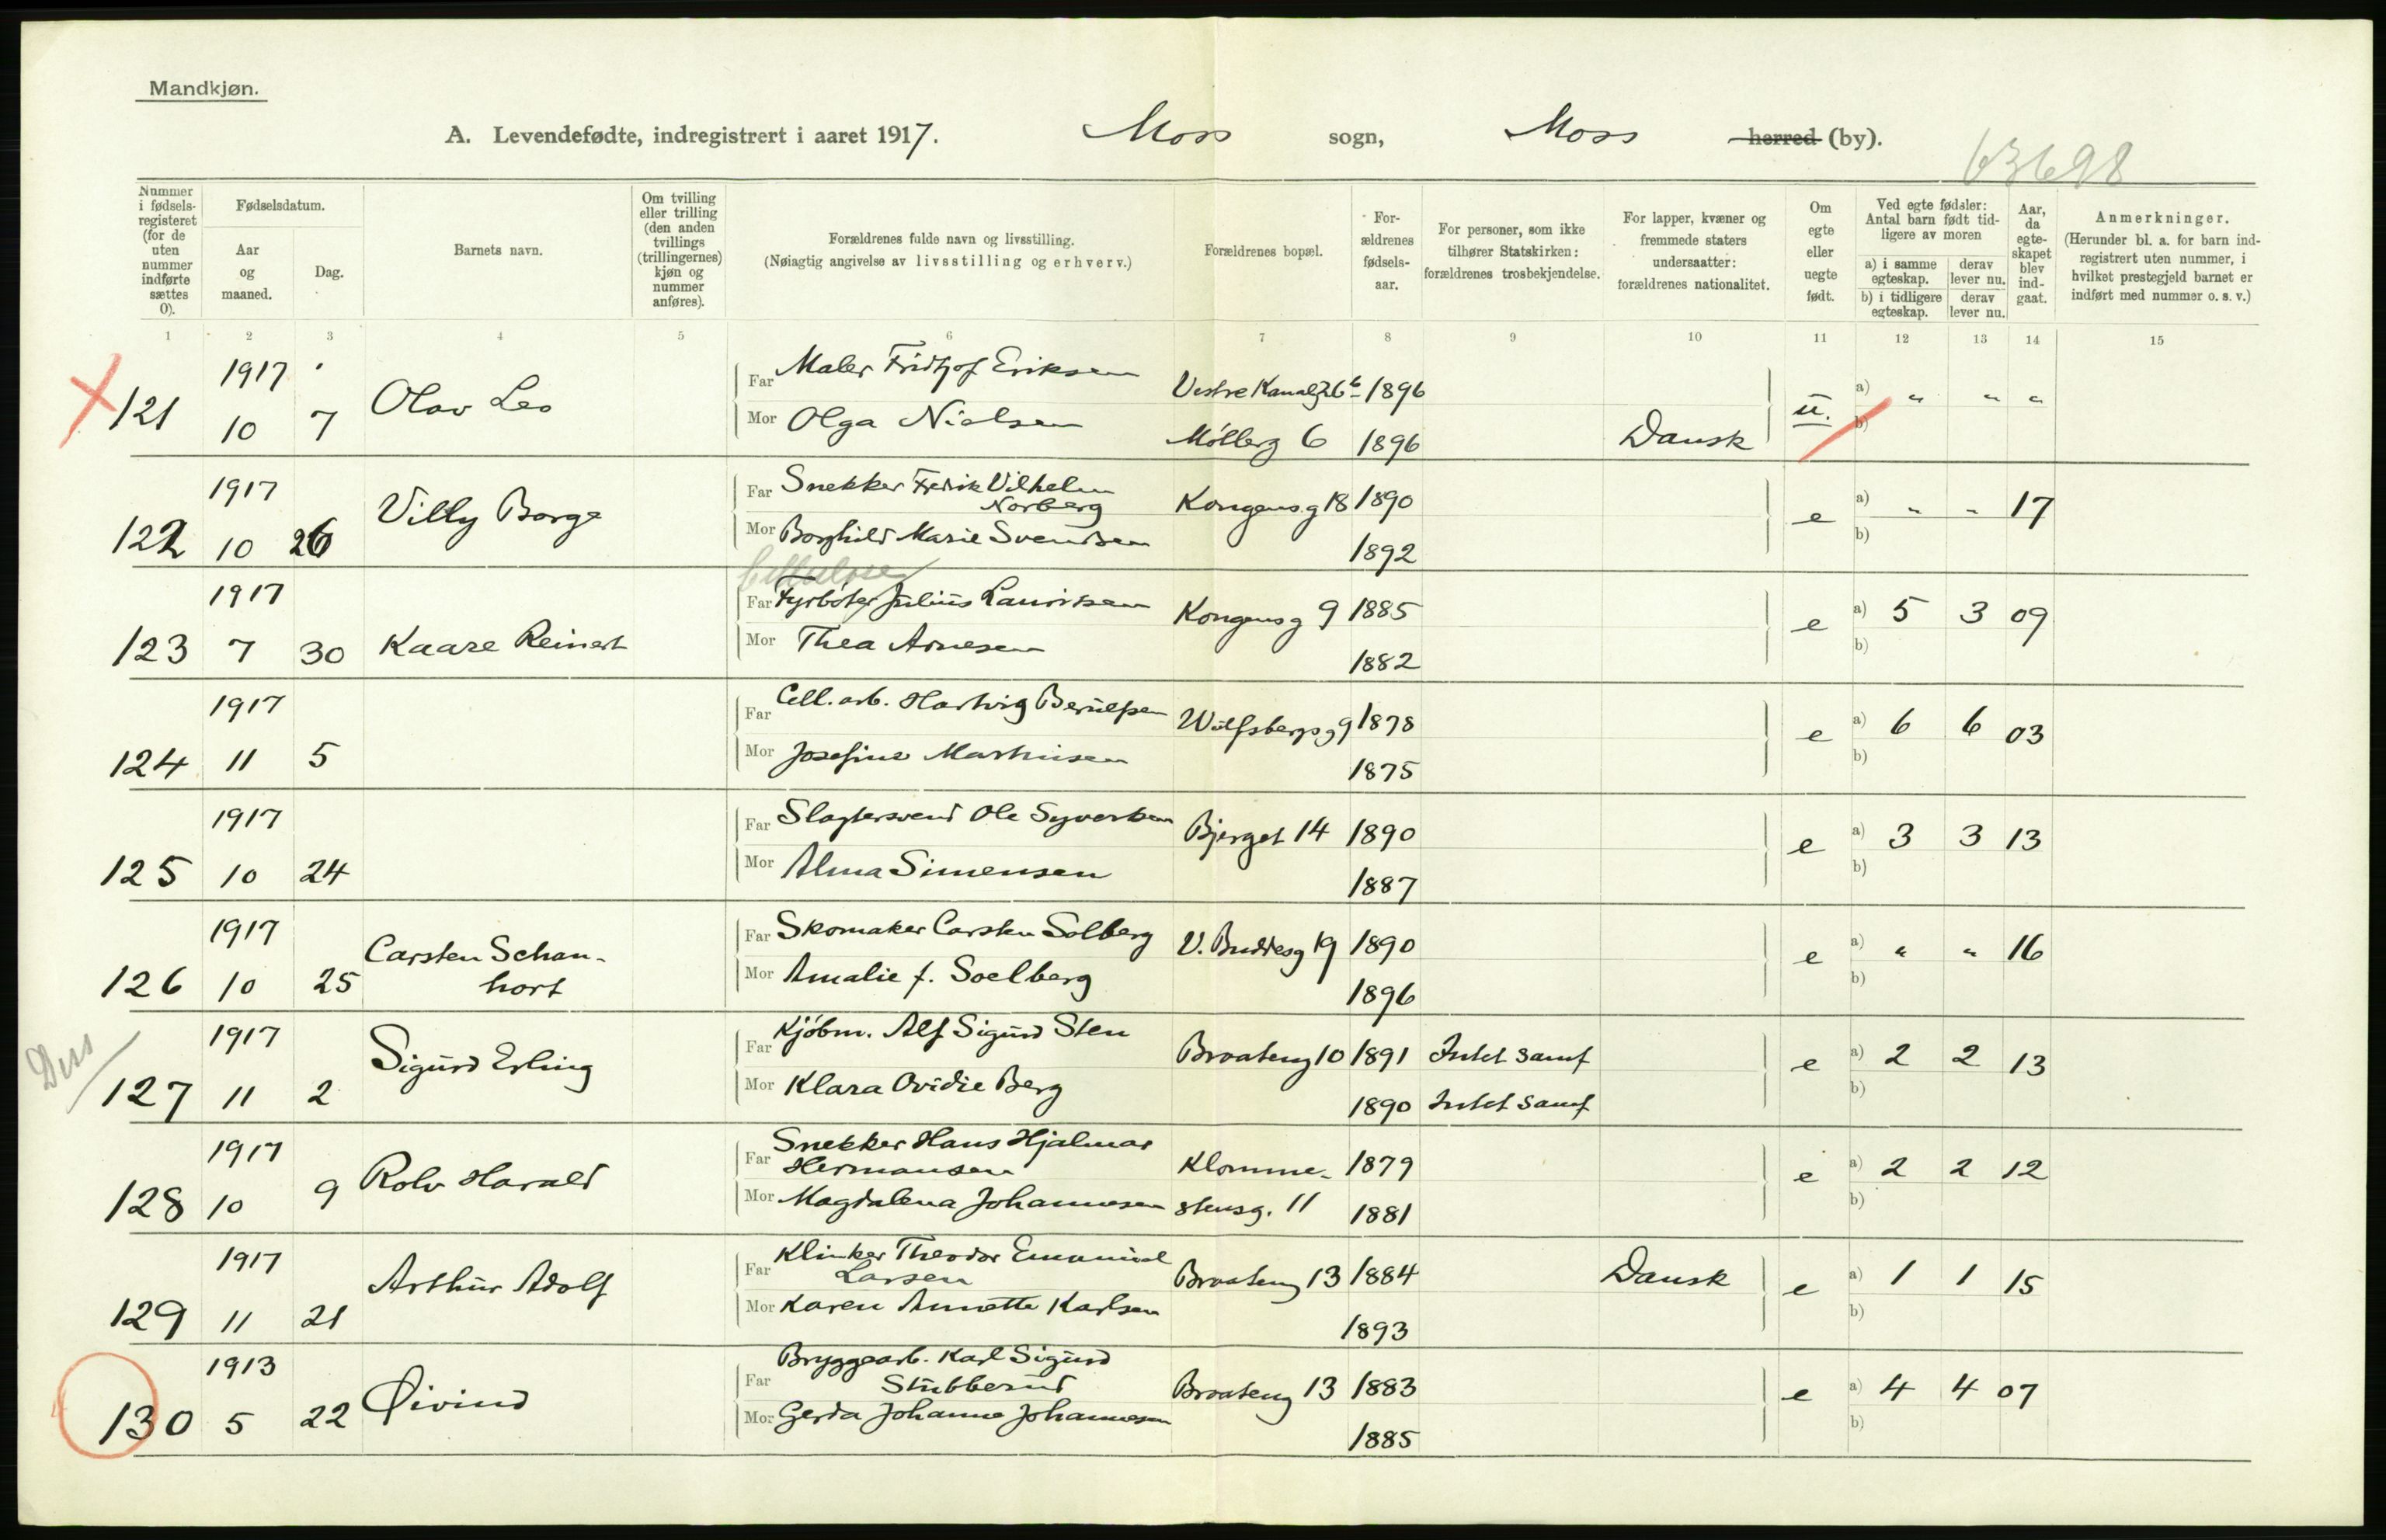 Mandkjøn.
A. Levendefødte, indregistrert i aaret 1917. Moss sogn, Moss herred (by).
63698
Nummer i fødsels-registeret (for de uten nummer indførte sættes 0).
Fødselsdatum.
Aar og maaned.
Dag.
Barnets navn.
Om tvilling eller trilling (den anden tvillings (trillingernes) kjøn og nummer anføres).
Forældrenes fulde navn og livsstilling.
(Nøiagtig angivelse av livsstilling og erhverv.)
Forældrenes bopæl.
For-ældrenes fødsels-aar.
For personer, som ikke tilhører Statskirken: forældrenes trosbekjendelse.
For lapper, kvæner og fremmede staters undersaatter: forældrenes nationalitet.
Om egte eller uegte født.
Ved egte fødsler: Antal barn født tid-ligere av moren
a) i samme egteskap. derav lever nu.
b) i tidligere egteskap. derav lever nu.
Aar, da egte-skapet blev ind-gaat.
Anmerkninger.
(Herunder bl. a. for barn ind-registrert uten nummer, i hvilket prestegjeld barnet er indført med nummer o. s. v.)
1 2 3 4 5 6 7 8 9 10 11 12 13 14 15
1917 Far Maler Fridtjof Eriksen Vestre Kanalg 26b 1896 a) " " "
121 10 7 Olav Leo Mor Olga Nielsen Mölberg 6 1896 Dansk u. b)
1917 Far Snekker Fredrik Vilhelm
Norberg Kongensg 18 1890 a) " " 17
122 10 26 Villy Borge Mor Borghild Marie Svendsen 1892 e b)
Cellulose
1917 Far Fyrböter Julius Lauritsen Kongensg 9 1885 a) 5 3 09
123 7 30 Kaare Reinert Mor Thea Arnesen 1882 e b)
1917 Far Cell. arb. Hartvig Berulfsen Wulfsbergsg 9 1878 a) 6 6 03
124 11 5 Mor Josefine Marthinsen 1875 e b)
1917 Far Slagtersvend Ole Syvertsen Bjerget 14 1890 a) 3 3 13
125 10 24 Mor Alma Simensen 1887 e b)
1917 Far Skomaker Carsten Solberg V. Buddesg 19 1890 a) " " 16
126 10 25 Carsten Schan-
hort Mor Amalie f. Soelberg 1896 e b)
Diss
1917 Far Kjöbm. Alf Sigurd Sten Braateng 10 1891 Intet samf a) 2 2 13
127 11 2 Sigurd Erling Mor Klara Ovidie Berg 1890 Intet samf e b)
1917 Far Snekker Hans Hjalmar
Hermansen Klomme- 1879 a) 2 2 12
128 10 9 Rolv Harald Mor Magdalena Johannesen stensg. 11 1881 e b)
1917 Far Klinker Theodor Emanuel
Larsen Braateng 13 1884 Dansk a) 1 1 15
129 11 21 Arthur Adolf Mor Karen Annette Karlsen 1893 e b)
1913 Far Bryggearb. Karl Sigurd
Stubberud Braateng 13 1883 a) 4 4 07
130 5 22 Øivind Mor Gerda Johanne Johannesen 1885 e b)